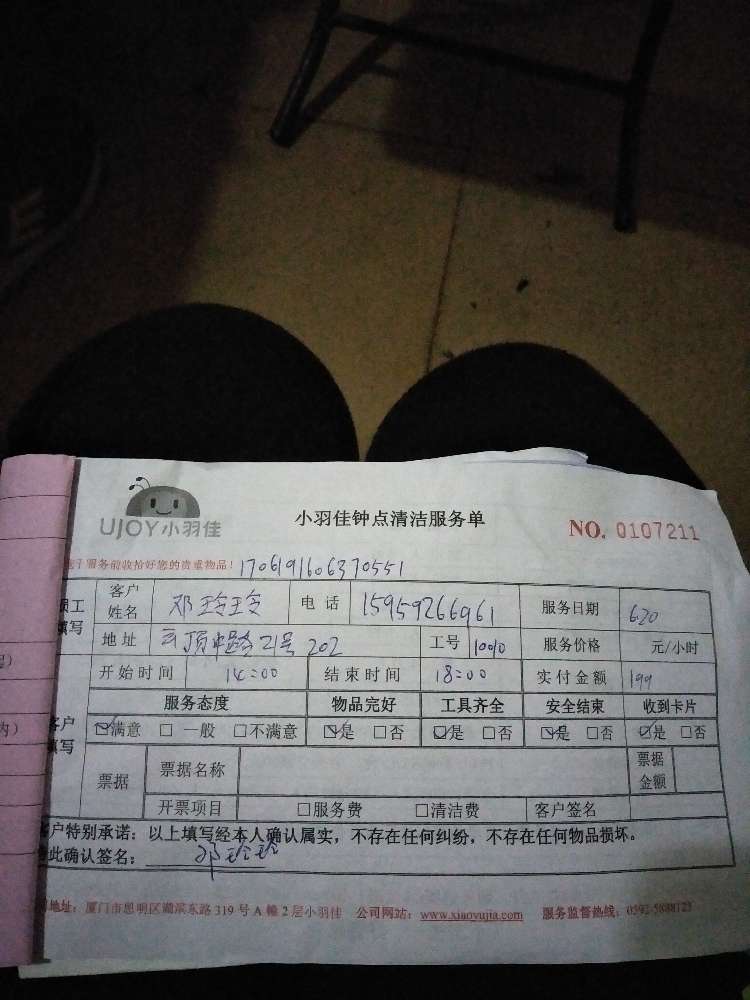 UJOY小羽佳
小羽佳钟点清洁服务单
NO. 0107211
服务前收拾好您的贵重物品！1706191606370551
员工填写
客户姓名 邓玲玲 电话 15959266961 服务日期 6.20
地址 云顶中路21号202 工号 10010 服务价格 元/小时
开始时间 14:00 结束时间 18:00 实付金额 199
服务态度 物品完好 工具齐全 安全结束 收到卡片
客户填写
☑满意 □一般 □不满意 ☑是 □否 ☑是 □否 ☑是 □否 ☑是 □否
票据 票据名称 票据金额
开票项目 □服务费 □清洁费 客户签名
客户特别承诺：以上填写经本人确认属实，不存在任何纠纷，不存在任何物品损坏。
此确认签名： 邓玲玲
地址：厦门市思明区湖滨东路319号A幢2层小羽佳 公司网站：www.xiaoyujia.com 服务监督热线：0592-5888123